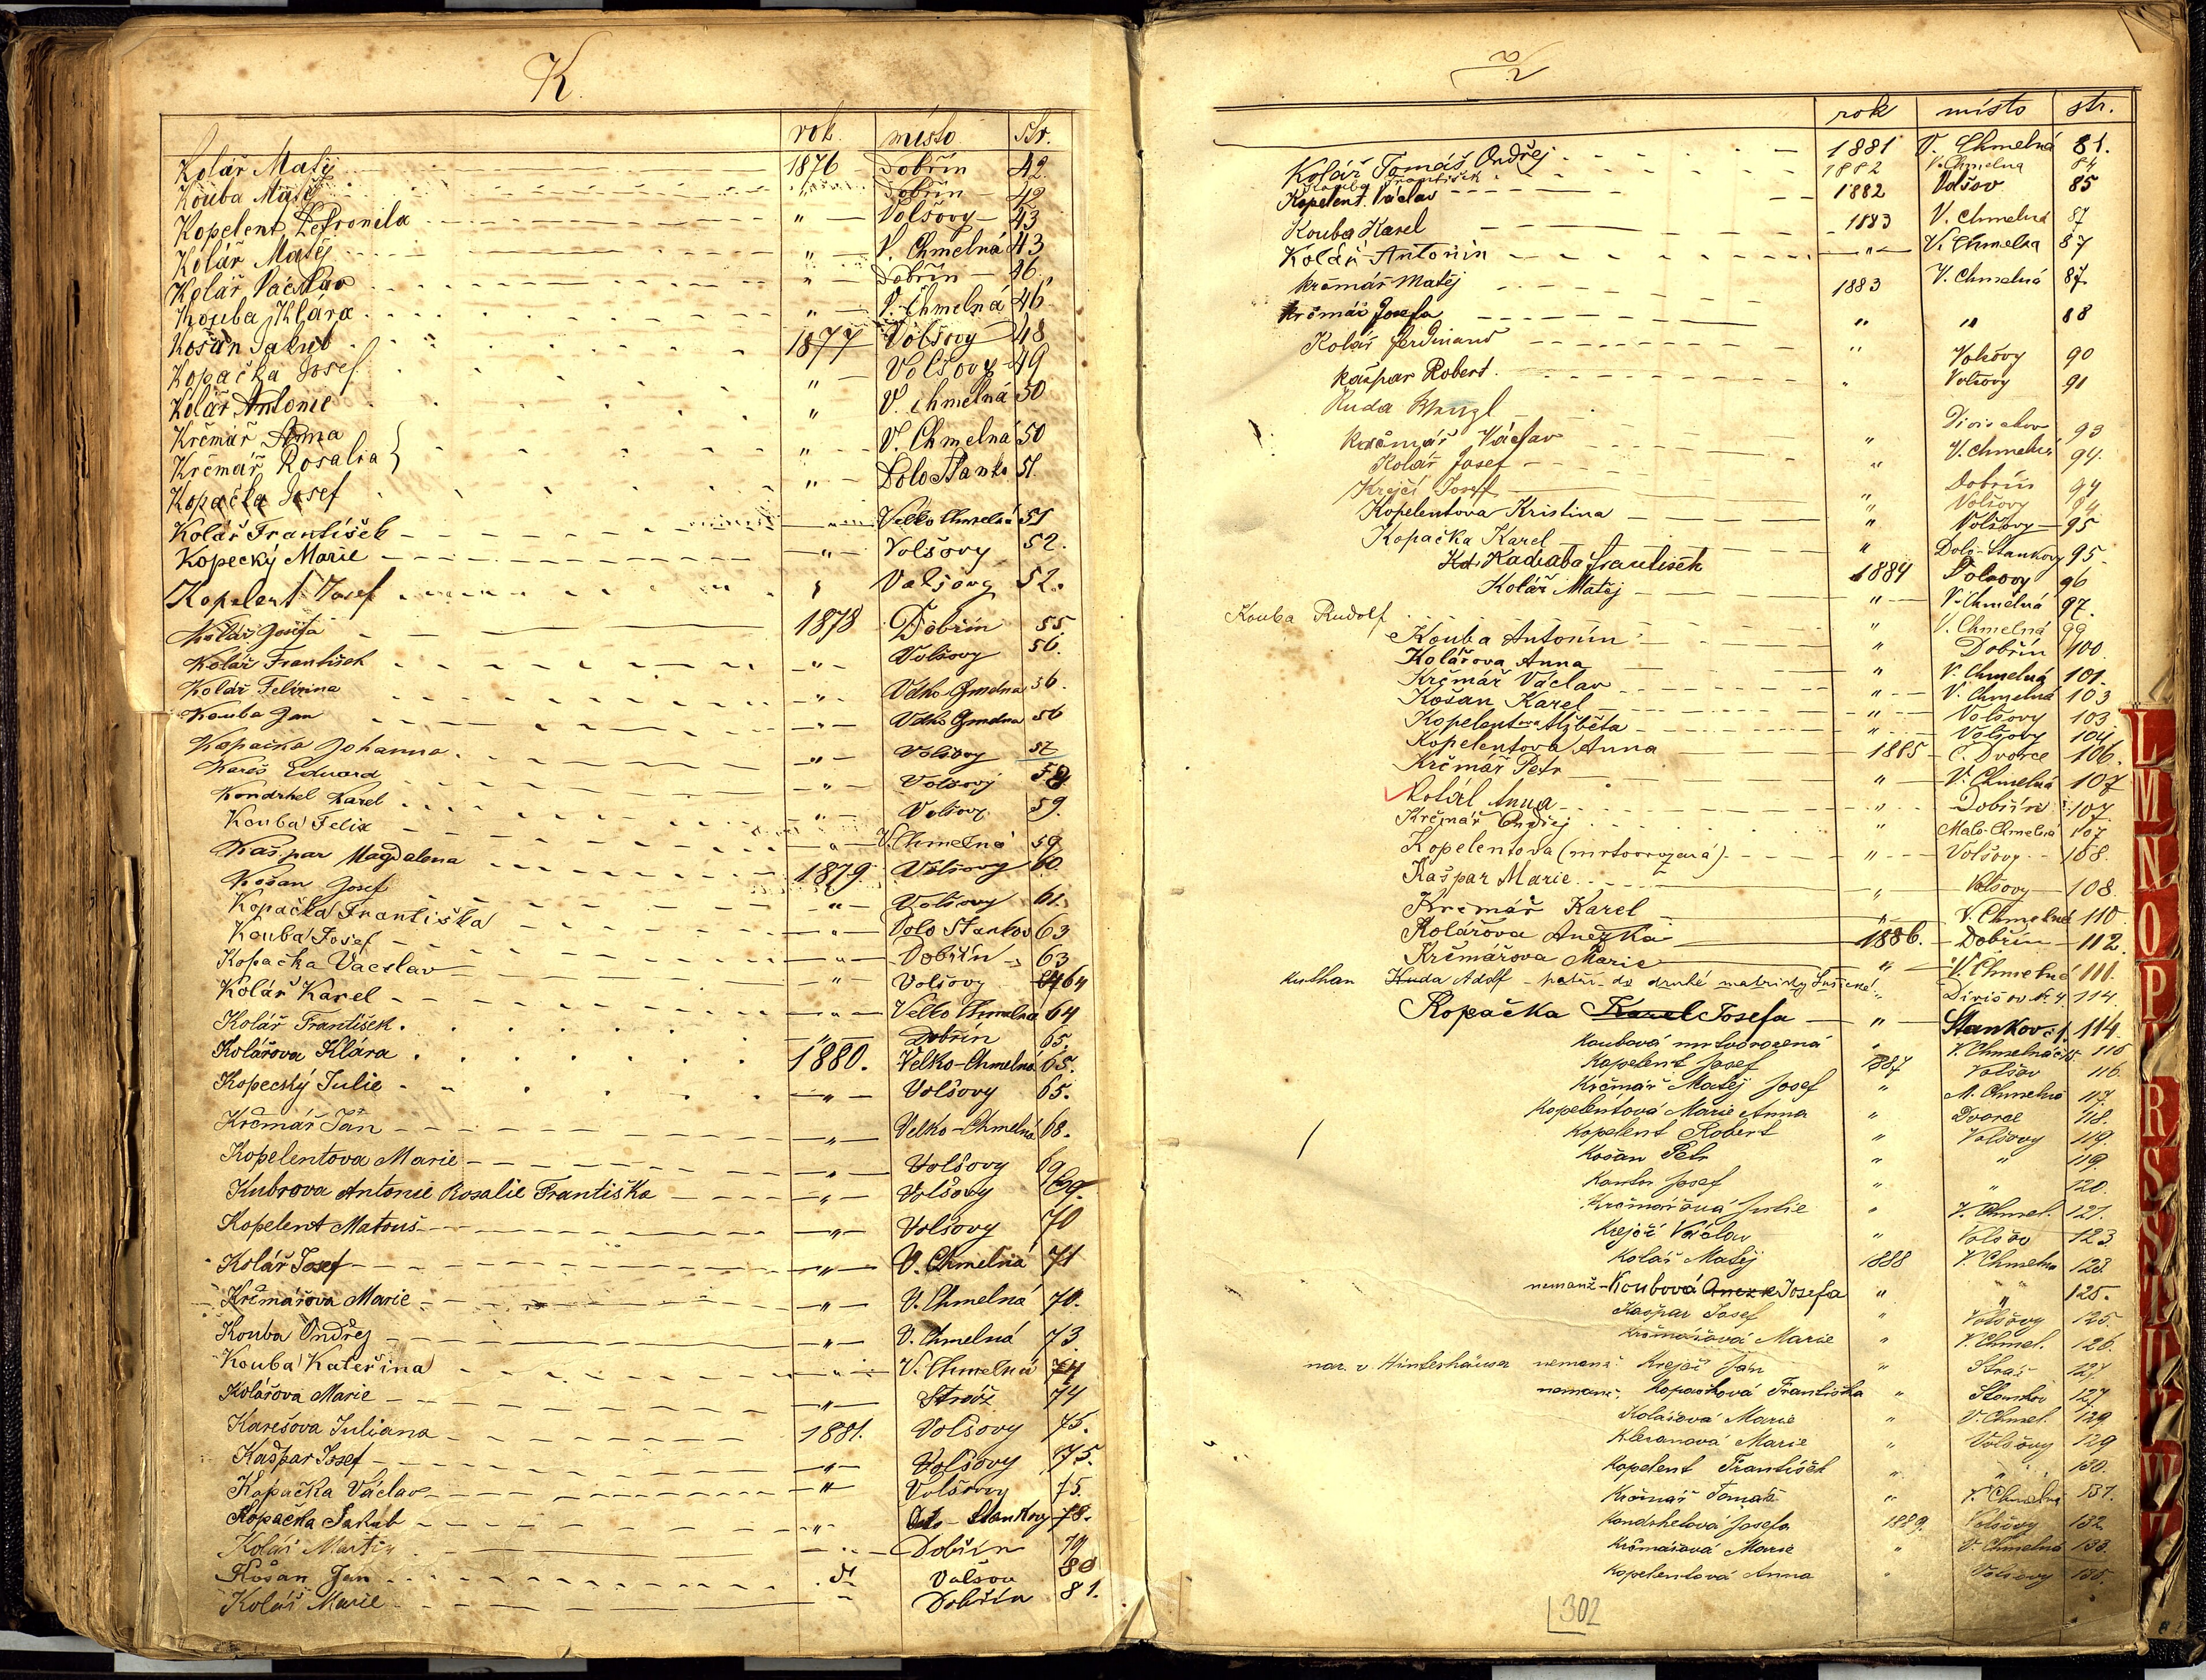 K
rok místo Str.
Kolář Matěj 1876 Dobřín 42
Kouba Matěj " Dobřín 42
Kopelent Petronila " Volšovy 43
Kolář Matěj " V. Chmelná 43
Kolář Václav " Dobřín 46
Kouba Klára " V. Chmelná 46
Košan Jakub 1877 Volšovy 48
Kopačka Josef " Volšovy 49
Kolář Antonie " V. Chmelná 50
Krčmář Anna
Krčmář Rosalia } " V. Chmelná 50
Kopačka Josef " Dolo Stanko 51.
Kolář František " Velko Chmelná 51
Kopecký Marie " Volšovy 52.
Kopelent Josef " Volšovy 52.
Kolář Josefa 1878 Dobřín 55
Kolář František " Volšovy 56.
Kolář Felixina " Velko Chmelna 56.
Kouba Jan " Velko Chmelna 56
Kopačka Johanna " Volšovy 57
Kareš Eduard " Volšovy 58
Kondrhel Karel " Volšovy 59.
Kouba Felix " V. Chmelná 59
Kašpar Magdalena 1879 Volšovy 60.
Košan Josef " Volšovy 61.
Kopačka Františka " Dolo Stankov 63
Kouba Josef " Dobřín 63
Kopačka Vacslav " Volšovy 64
Kolář Karel " Velko Chmelna 64
Kolář František " Dobřín 65.
Kolářova Klára 1880. Velko-Chmelná 65.
Kopecský Julie " Volšovy 65.
Krčmář Jan " Velko-Chmelná 68.
Kopelentova Marie " Volšovy 69
Kubrova Antonie Rosalie Františka " Volšovy 69.
Kopelent Matouš " Volšovy 70
Kolář Josef " V. Chmelná 71
Krčmářova Marie " V. Chmelná 70.
Kouba Ondřej " V. Chmelná 73.
Kouba Kateřina " V. Chmelná 74
Kolářova Marie " Stráž 74
Karešova Juliana 1881. Volšovy 75.
Kašpar Josef " Volšovy 75.
Kopačka Václav " Volšovy 75.
Kopačka Jakub " Dolo-Stankovy 78.
Kolář Martin " Dobřín 79
Košan Jan " Volšov 80
Kolář Marie " Dobřín 81.
rok místo str.
Kolář Tomáš Ondřej 1881 V. Chmelná 81.
Kouba František 1882 V. Chmelna 84
Kopelent Václav 1882 Volšov 85
Kouba Karel 1883 V. Chmelná 87
Kolář Antonín " V. Chmelna 87
Krčmář Matěj 1883 V. Chmelná 87.
Krčmář Josefa " " 88
Kolář Ferdinand " Volšovy 90
Kašpar Robert " Volšovy 91
Kuda Wenzl Divišov 93
Krčmář Václav " V. Chmelná 94.
Kolář Josef " Dobřín 94
Krejčí Josef " Volšovy 94.
Kopelentova Kristina " Volšovy 95
Kopačka Karel " Dolo-Stankovy 95.
Kadraba František 1884 Volšovy 96
Kolář Matěj " V. Chmelná 97.
Kouba Rudolf " V. Chmelná 99
Kouba Antonín " Dobřín 100.
Kolářova Anna " V. Chmelná 101.
Krčmář Václav " V. Chmelná 103
Košan Karel " Volšovy 103.
Kopelentova Alžběta " Volšovy 104
Kopelentova Anna 1885 Č. Dvorce 106.
Krčmář Petr " V. Chmelná 107
Kolář Anna " Dobřín 107.
Krčmář Ondřej " Malo-Chmelná 107
Kopelentova (mrtvorozená) " Volšovy 108.
Kašpar Marie " Volšovy 108.
Krčmář Karel " V. Chmelná 110
Kolářova Anežka 1886. Dobřín 112.
Krčmářova Marie " V. Chmelná 111.
Kusthan Kuda Adolf - patří do druhé matriky Sušické " Divišov No 4 114.
Kopačka Karel Josefa " Stankov č. 1. 114.
Koubová mrtvorozená " V. Chmelná č. 15 115
Kopelent Josef 1887 Volšov 116.
Krčmář Matěj Josef " M. Chmelná 117.
Kopelentová Marie Anna " Dvorce 118.
Kopelent Robert " Volšovy 119.
Košan Petr " " 119.
Kantor Josef " " 120.
Krčmářová Julie " V. Chmel. 121.
Krejčí Václav " Volšov 123.
Kolář Matěj 1888 V. Chmelna 123.
nemanž - Koubová Anežk Josefa " " 125.
Kašpar Josef " Volšovy 125.
Krčmářová Marie " V. Chmel. 126.
nar. v Hinterhäuser nemanž. Krejčí Jan " Stráž 127.
nemanž. Kopačková Františka " Stankov 127.
Kolářová Marie " V. Chmel. 129.
Klesanová Marie " Volšovy 129
Kopelent František " " 130.
Krčmář Tomáš " V. Chmelná 131.
Kondrhelová Josefa 1889. Volšovy 132.
Krčmářová Marie " V. Chmelná 133.
Kopelentová Anna " Volšovy 135.
302
L
M
N
O
P
R
S